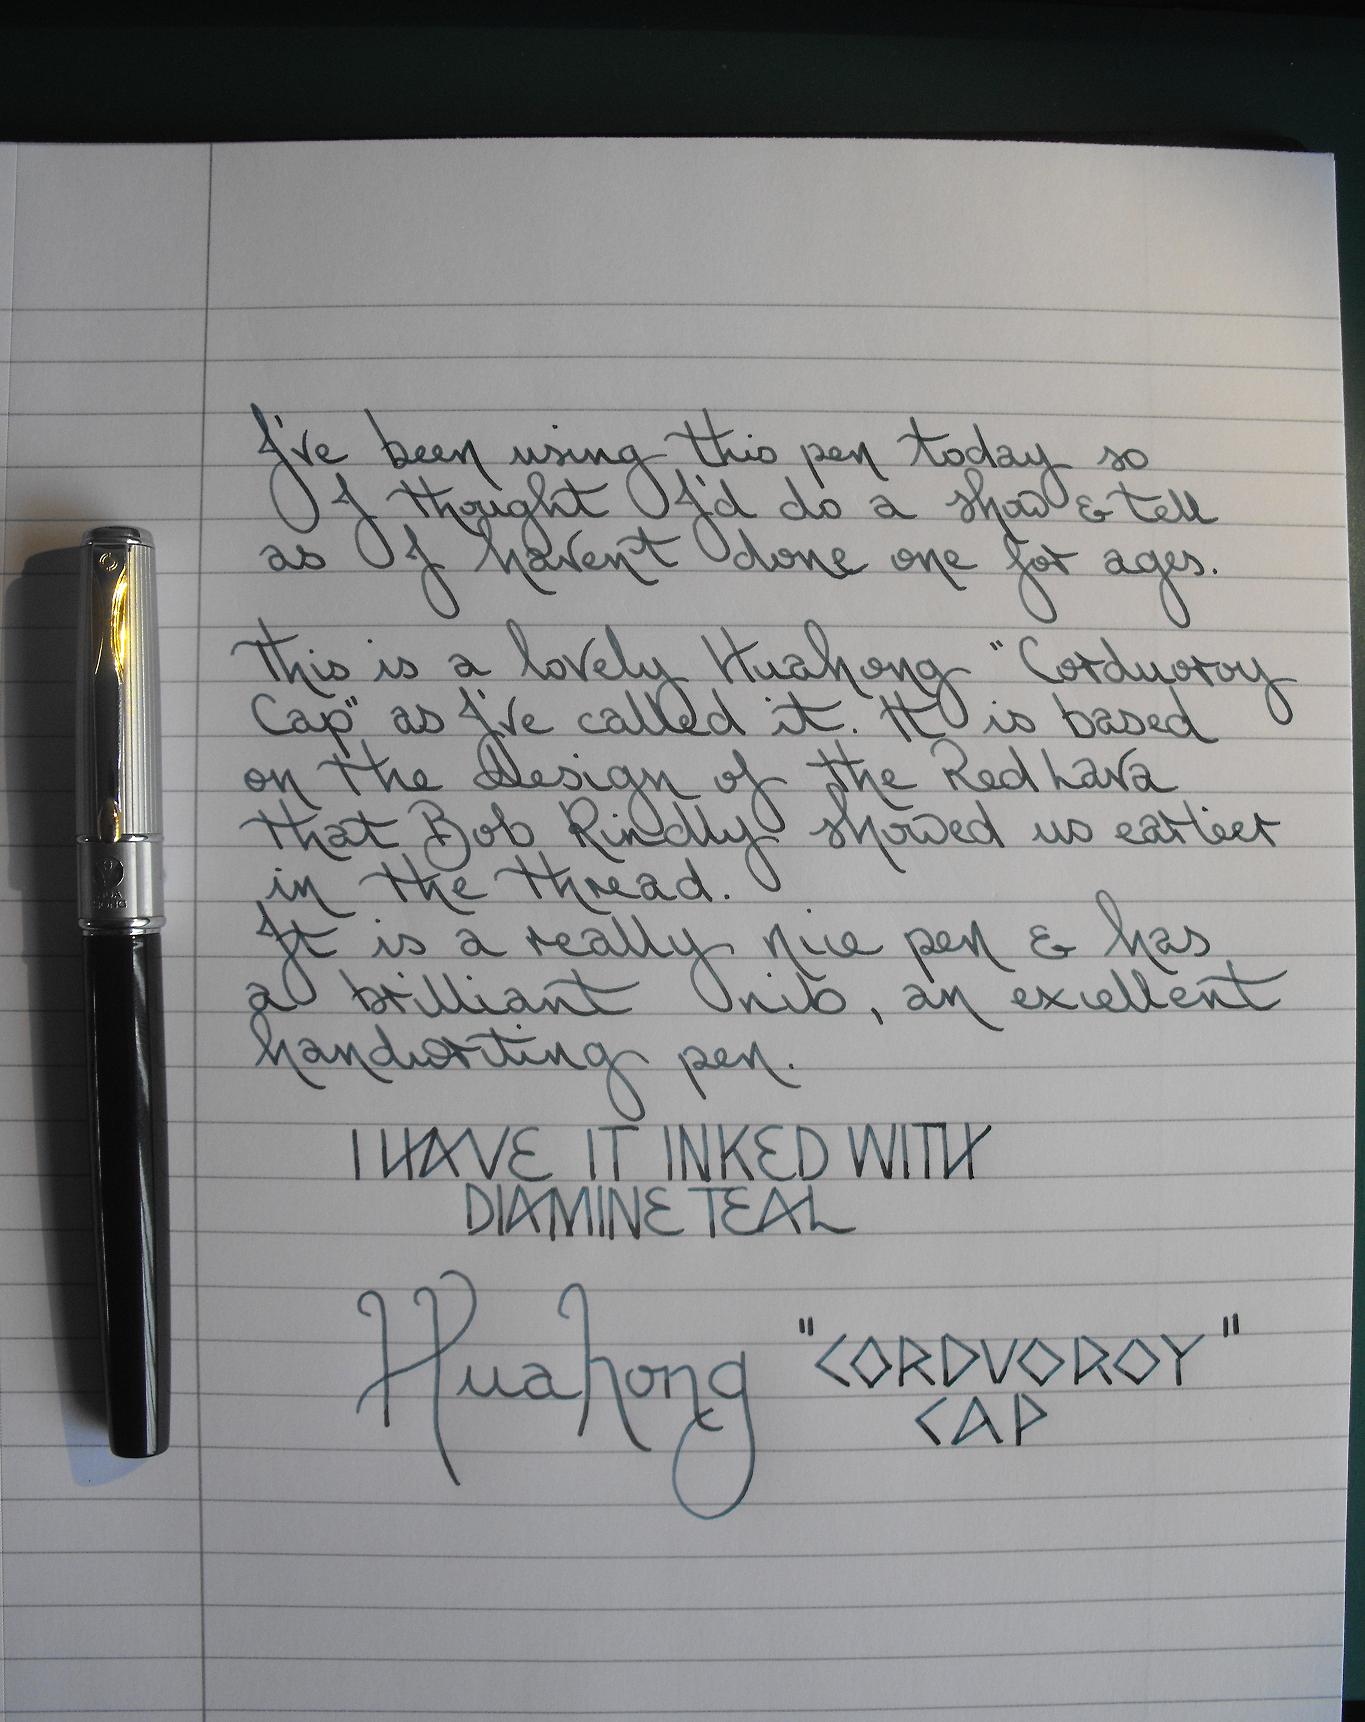 I've been using this pen today so
I thought I'd do a show & tell
as I haven't done one for ages.
This is a lovely Huahong "Corduoroy
Cap" as I've called it. It is based
on the design of the Red Lava
that Bob Rindly showed us earlier
in the thread.
It is a really nice pen & has
a brilliant nib, an excellent
handwriting pen.
I HAVE IT INKED WITH
DIAMINE TEAL
Huahong "CORDVOROY"
CAP